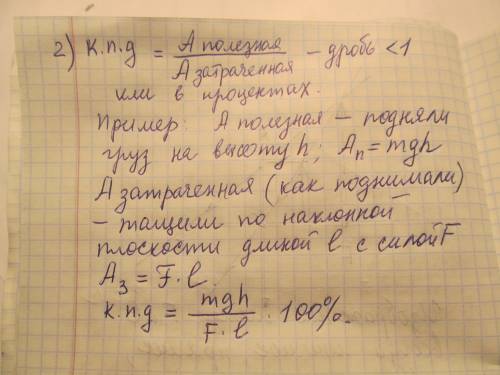 2) К.п.д = А полезная / А затраченная – дробь < 1
или в процентах.
Пример: А полезная – подняли
груз на высоту h; Aп = mgh
А затраченная (как поднимали)
– тащили по наклонной
плоскости длиной l с силой F
Aз = F·l.
к.п.д = mgh / F·l · 100%.